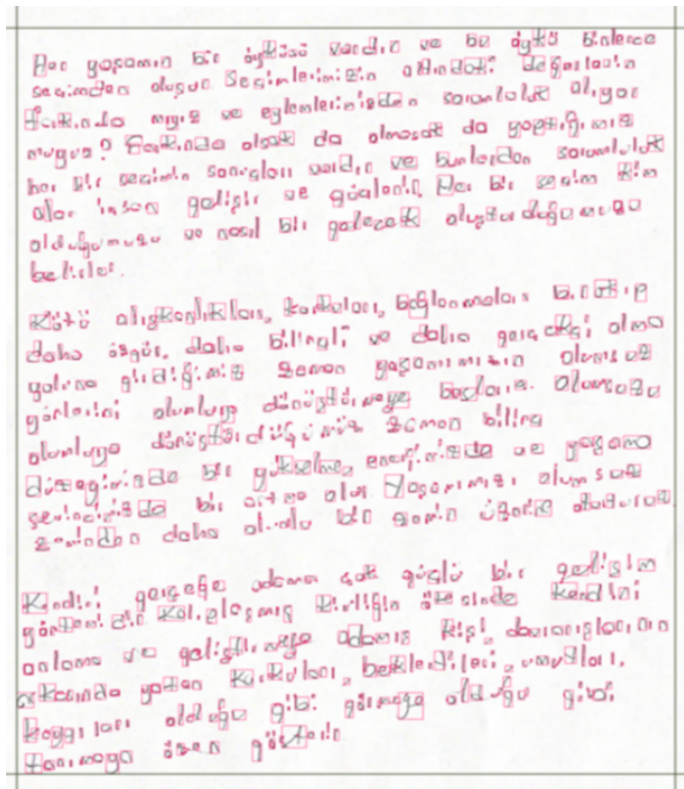 Her yaşamın bir öyküsü vardır ve bu öykü binlerce
seçimden oluşur. Seçimlerimizin altındaki değerlerin
farkında mıyız ve eylemlerimizden sorumluluk alıyor
muyuz? Farkında olsak da olmasak da yaptığımız
her bir seçimin sonuçları vardır ve bunlardan sorumluluk
alan insan gelişir ve güçlenir. Her bir seçim kim
olduğumuzu ve nasıl bir gelecek oluşturduğumuzu
belirler.
Kötü alışkanlıkları, korkuları, bağlanmaları bırakıp
daha özgür, daha bilinçli ve daha gerçekçi olma
yoluna girdiğimiz zaman yaşamımızın olumsuz
yönlerini olumluya dönüştürmeye başlarız. Olumsuzu
olumluya dönüştürdüğümüz zaman bilinç
düzeyimizde bir yükselme, enerjimizde ve yaşama
sevincimizde bir artma olur. Yaşamımızı olumsuz
zeminden daha olumlu bir zemin üzerine oturturuz.
Kendini gerçeğe adama çok güçlü bir gelişim
yöntemidir. Kalıplaşmış kimliğin ötesinde kendini
anlama ve geliştirmeye adamış kişi, davranışlarının
arkasında yatan korkuları, beklentileri, umutları,
kaygıları olduğu gibi görmeye olduğu gibi
tanımaya özen gösterir.